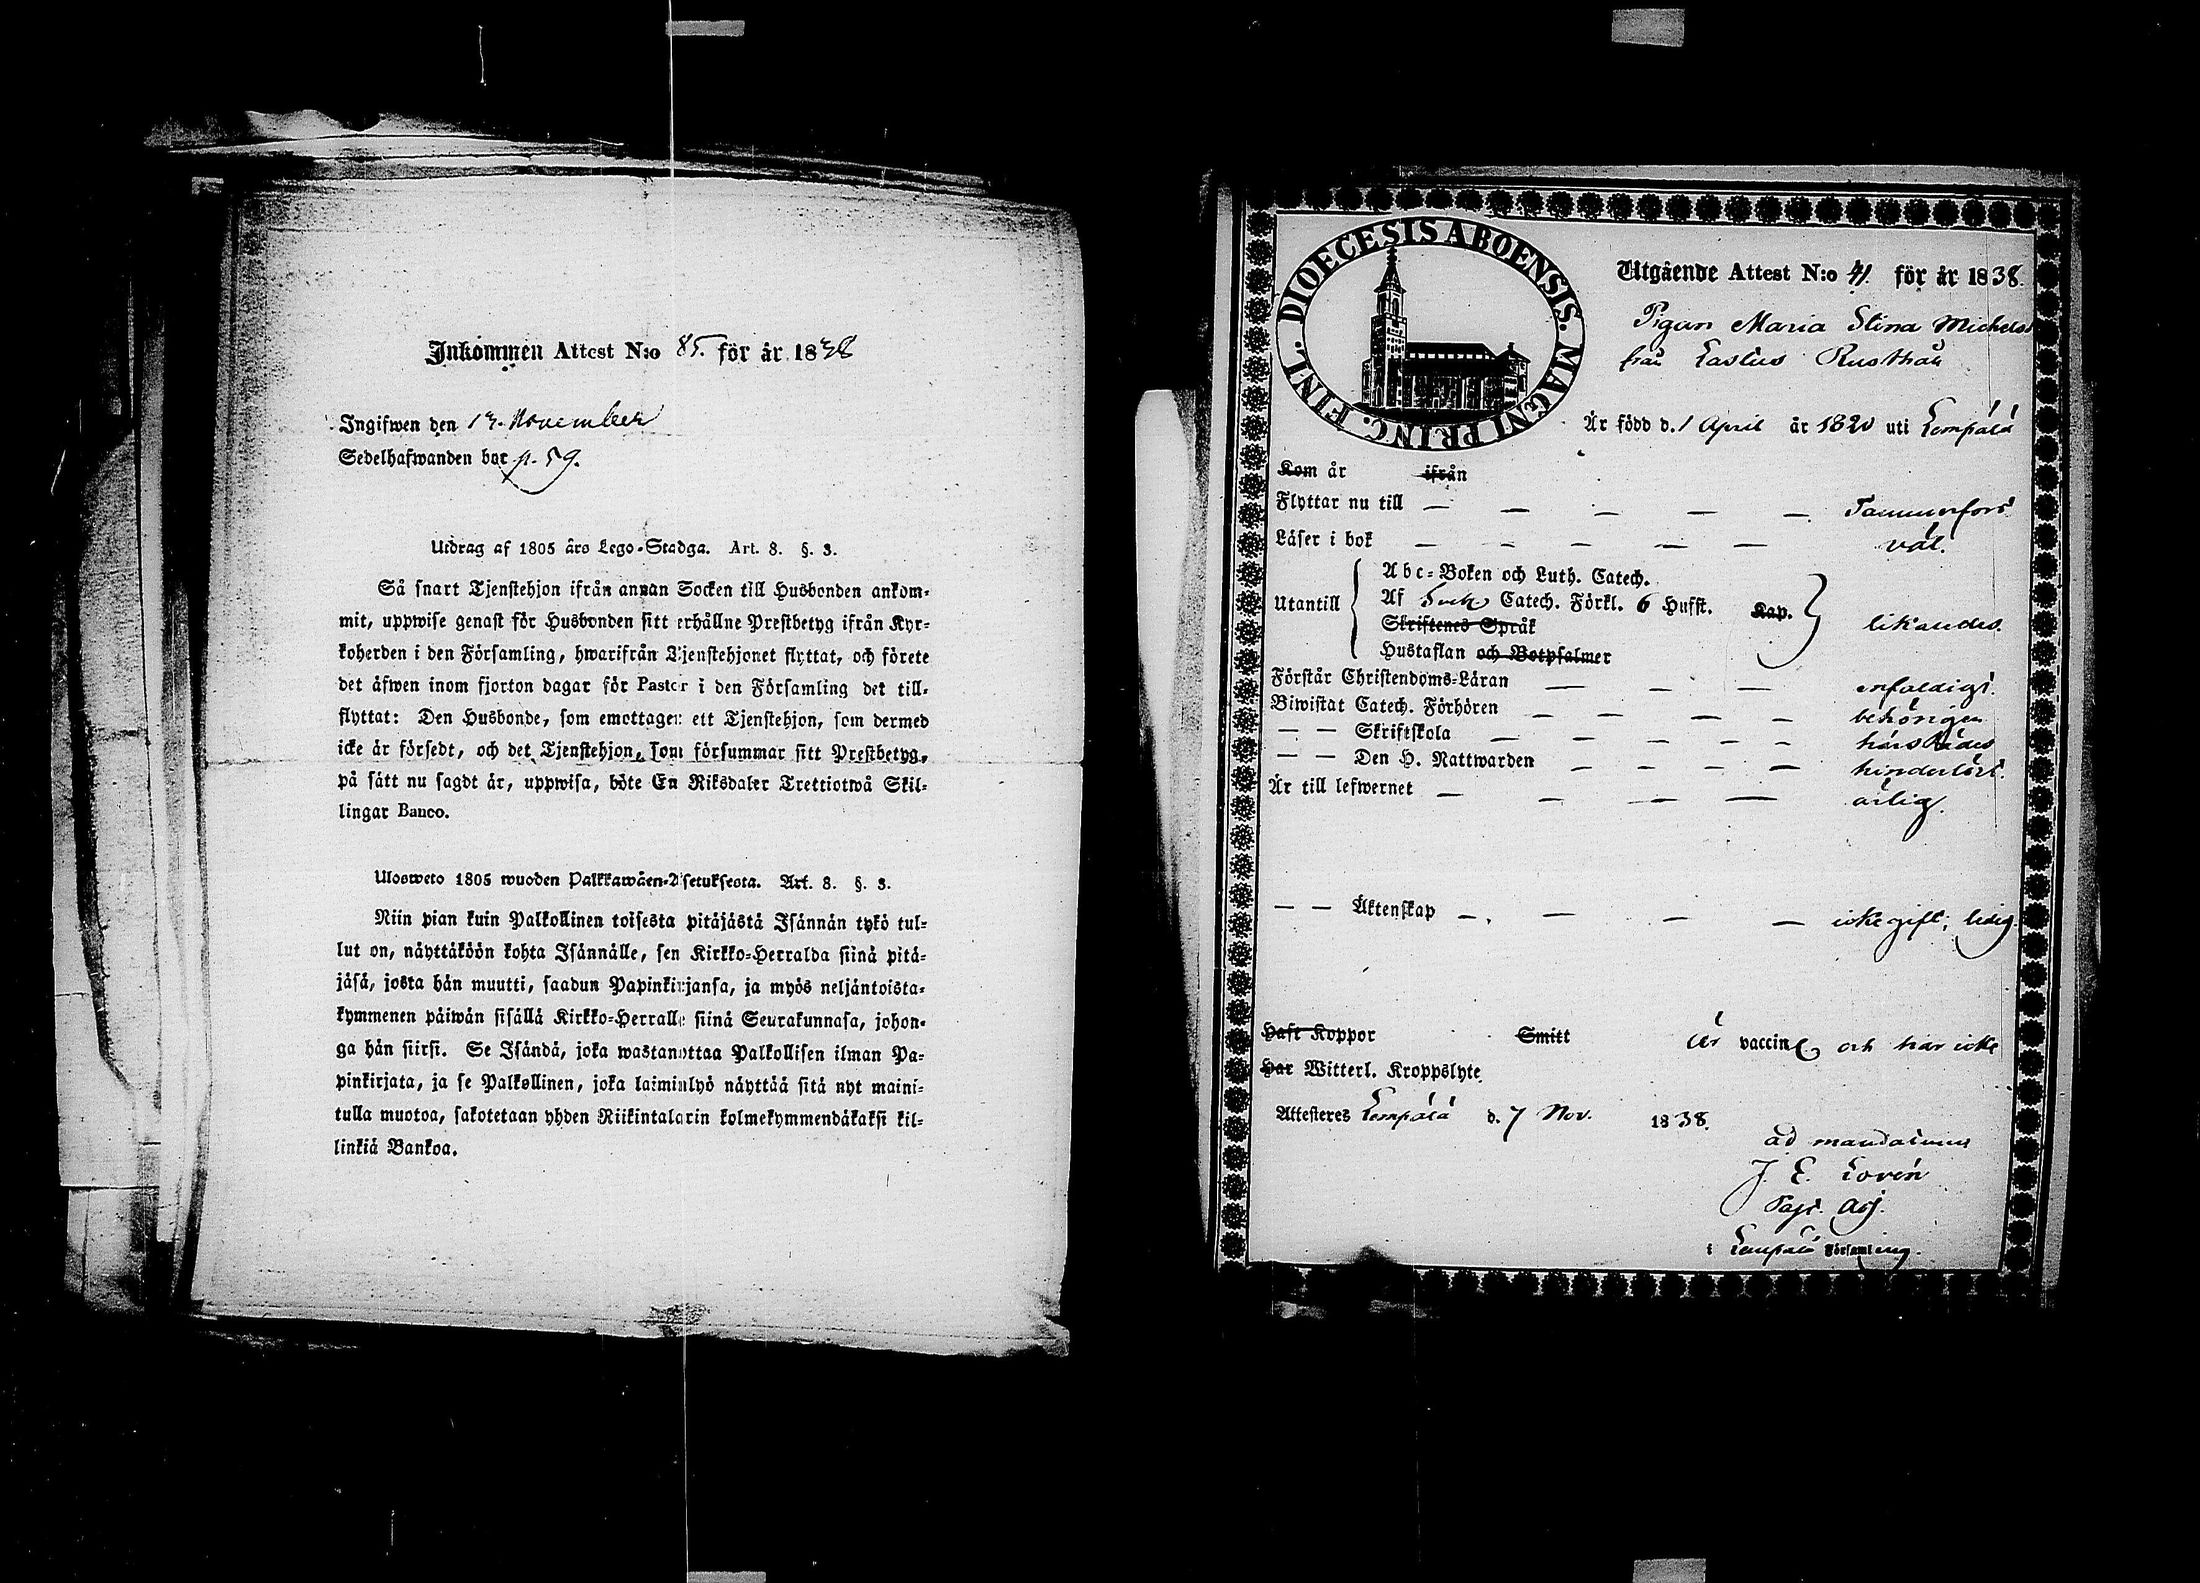 Inkommen Attest N:o 85. för år 1838
Ingifwen den 13. November
Sedelhafwanden bor p. 59.
Utdrag af 1805 års Lego-Stadga. Art. 8. §. 3.
Så snart Tjenstehjon ifrån annan Socken till Husbonden ankom-
mit, uppwise genast för Husbonden sitt erhållne Prestbetyg ifrån Kyr-
koherden i den Församling, hwarifrån Tjenstehjonet flyttat, och förete
det äfwen inom fjorton dagar för Pastor i den Församling det till-
flyttat: Den Husbonde, som emottager ett Tjenstehjon, som dermed
icke är försedt, och det Tjenstehjon, som försummar sitt Prestbetyg,
på sätt nu sagdt är, uppwisa, böte En Riksdaler Trettiotwå Skil-
lingar Banco.
Ulosweto 1805 wuoden Palkkawäen-Asetuksesta. Art. 8. §. 3.
Niin pian kuin Palkollinen toisesta pitäjästä Isännän tykö tul-
lut on, näyttäköön kohta Isännälle, sen Kirkko-Herralda siinä pitä-
jäsä, josta hän muutti, saadun Papinkirjansa, ja myös neljäntoista-
kymmenen päiwän sisällä Kirkko-Herralle siinä Seurakunnasa, johon-
ga hän siirsi. Se Isändä, joka wastanottaa Palkollisen ilman Pa-
pinkirjata, ja se Palkollinen, joka laiminlyö näyttää sitä nyt maini-
tulla muotoa, sakotetaan yhden Riikintalarin kolmekymmendäkaksi kil-
linkiä Bankoa.
DIOECESIS ABOENSIS. MAGNI PRINC. FINL.
Utgående Attest N:o 41. för år 1838.
Pigan Maria Stina Michelsd
från Lastus Rusthåll
Är född d. 1 April år 1820 uti Lempälä
Kom år ifrån
Flyttar nu till — — — — — Tammerfors
Läser i bok — — — — — väl.
Utantill
Abc-Boken och Luth. Catech.
Af Catech. Förkl. 6 Hufst. Kap.
Skriftenes Språk
Hustaflan och Botpsalmer
likaledes.
Förstår Christendoms-Läran — — — enfaldigt.
Biwistat Catech. Förhören — — — — behörigen
— — Skriftskola — — — — — härstädes
— — Den H. Nattwarden — — — — hinderlöst.
Är till lefwernet — — — — ärlig.
— — Äktenskap — — — — icke gift; ledig.
Haft Koppor Smitt Är vaccin. och har icke
Har Witterl. Kroppslyte
Attesteras Lempälä d. 7 Nov. 1838.
ad mandatum
J. E. Lovén
Past. Adj.
i Lempälä Församling.